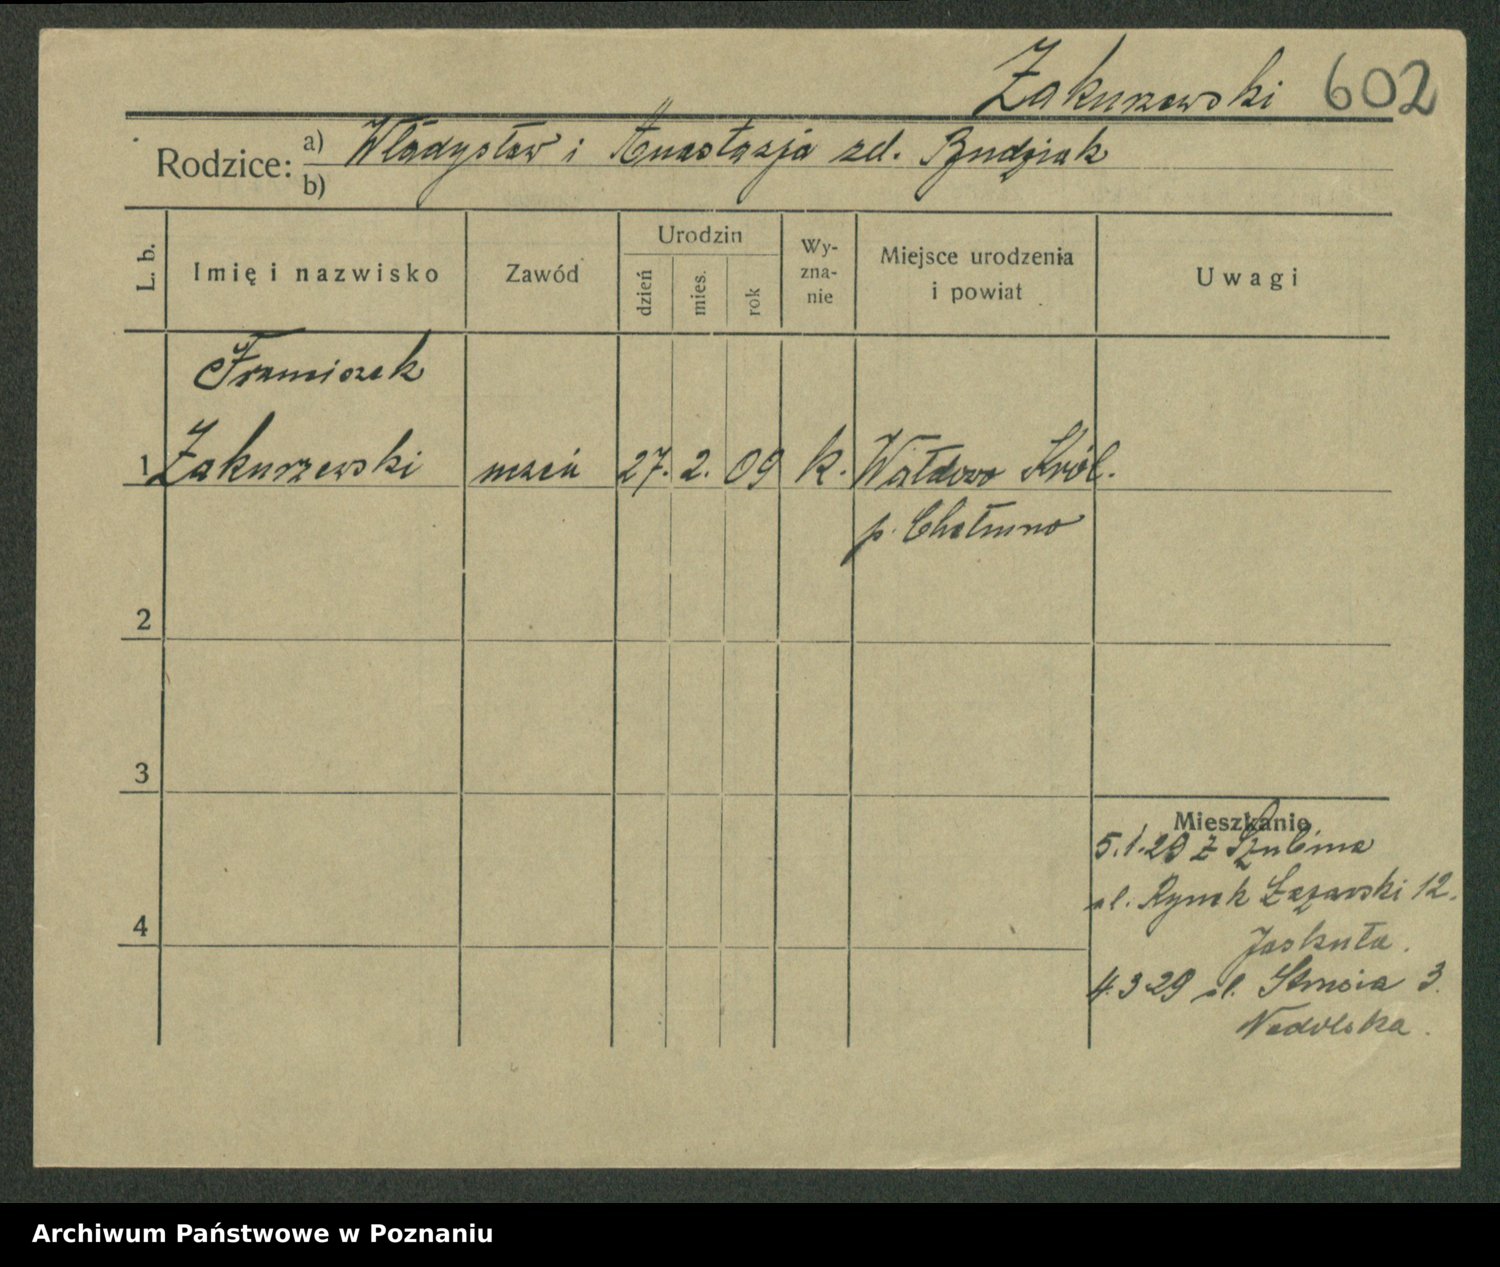 Zakurzewski 602
Rodzice: a) Władysław i Anastazja zd. Budziak
b)
L. b. Imię i nazwisko Zawód Urodzin dzień mies. rok Wyznanie Miejsce urodzenia i powiat Uwagi
Franciszek
1 Zakurzewski uczeń 27. 2. 09 k. Wałdowo Król.
p. Chełmno
2
3
Mieszkanie
5.1.29 z Szubina
ul. Rynek Łazarski 12.
4
Jaskuła.
4.3 29 ul. 3.
Nadolska.
Archiwum Państwowe w Poznaniu